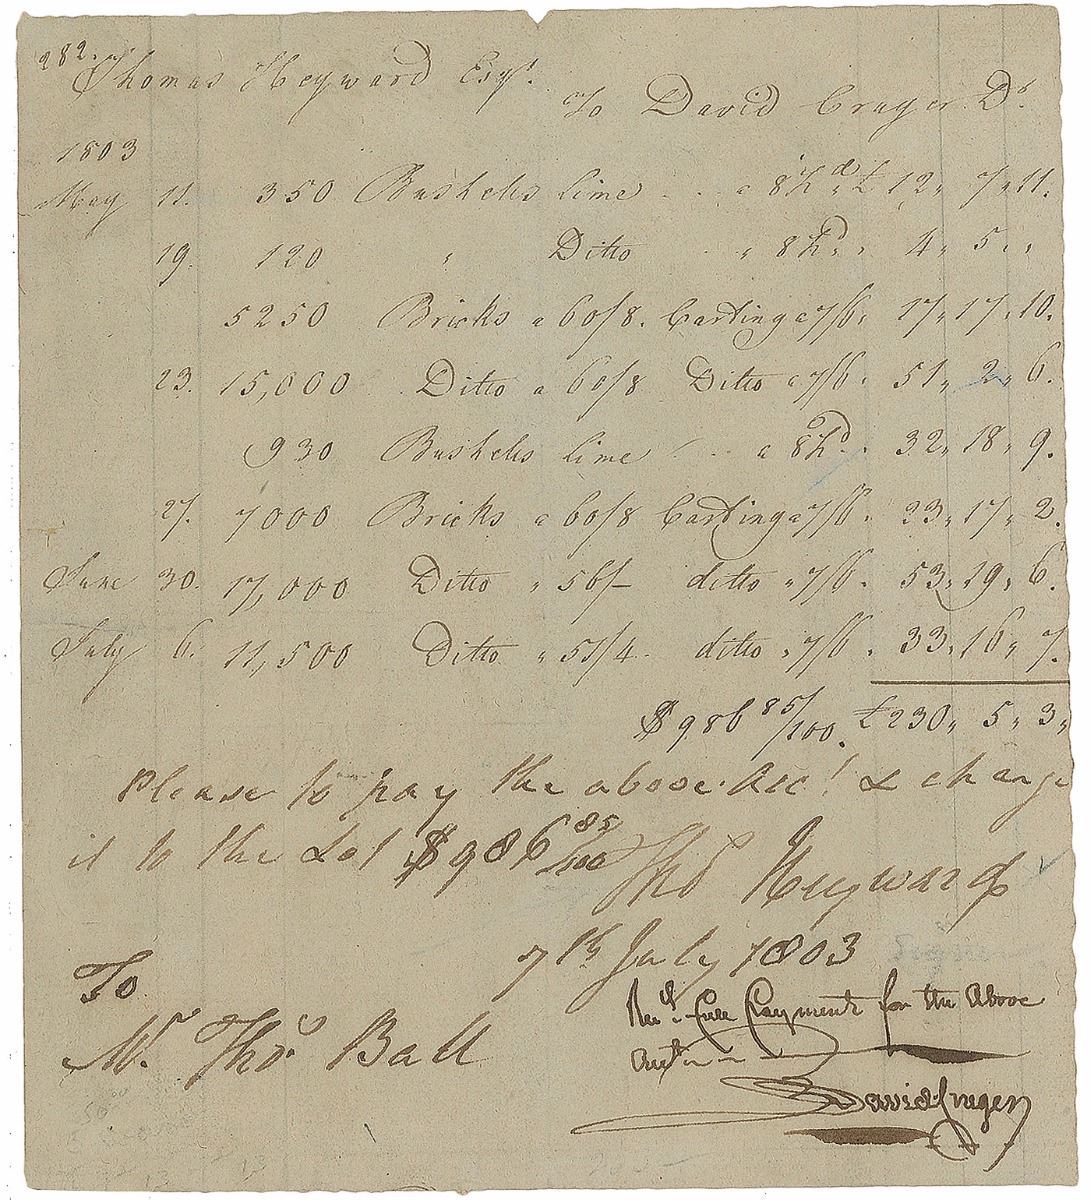 282.
Thomas Heyward Esqr.
To David Cruger Dr
1803
May 11. 350 Bushels lime .. a 8½d £12„ 7„ 11.
19. 120 „ Ditto .. „ 8½d „ 4„ 5„ „
5250 Bricks a 60/8. Carting a 7/6„ 17„ 17„ 10.
23. 15,000 Ditto a 60/8 Ditto a 7/6„ 51„ 2„ 6.
930 Bushels lime .. a 8½d.. 32„ 18„ 9.
27. 7000 Bricks a 60/8 Carting a 7/6„ 23„ 17„ 2.
June 30. 17,000 Ditto „ 56/- ditto „ 7/6. 53„ 19„ 6.
July 6. 11,500 Ditto „ 51/4. ditto „ 7/6. 33„ 16„ 7.
$986 85/100. £230„ 5„ 3„
Please to pay the above Acct. & charge
it to the Lot $986 85/100 Thos Heyward
7th July 1803
To
Mr. Thos. Ball
Recd. Full Payment for the Above
Acct
David Cruger